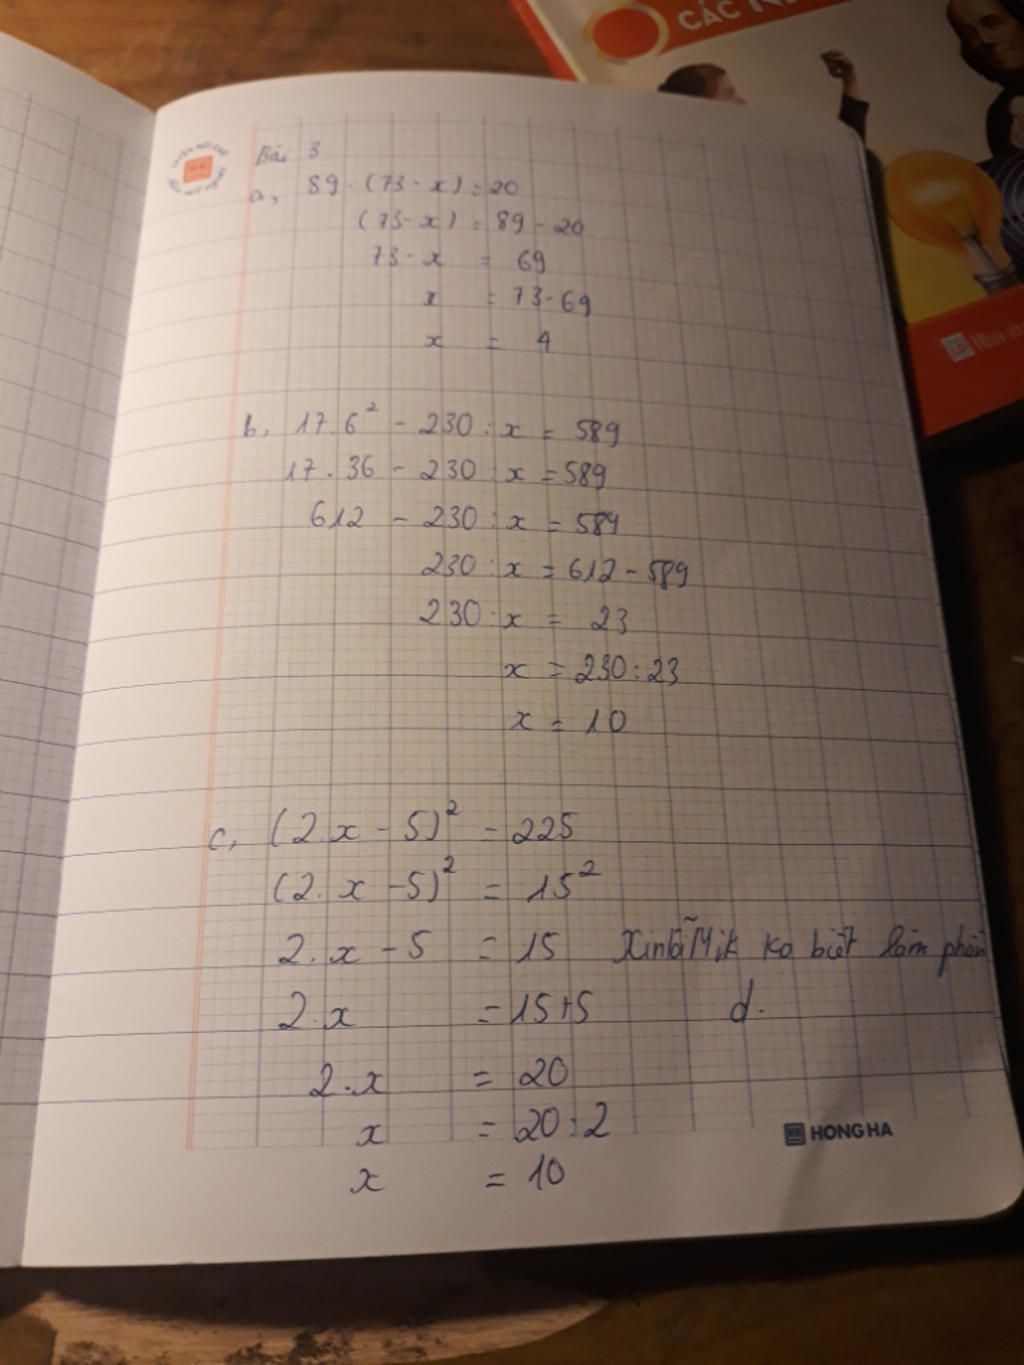 CÁC
Bài 3
a, 89 - (73 - x) = 20
(73 - x) = 89 - 20
73 - x = 69
x = 73 - 69
x = 4
b, 17.6² - 230 : x = 589
17 . 36 - 230 : x = 589
612 - 230 : x = 589
230 : x = 612 - 589
230 : x = 23
x = 230 : 23
x = 10
c, (2.x - 5)² = 225
(2. x - 5)² = 15²
2.x - 5 = 15 Xinlỗi Mik ko biết làm phần
2.x = 15+5 d.
2.x = 20
x = 20 : 2
x = 10
HONG HA